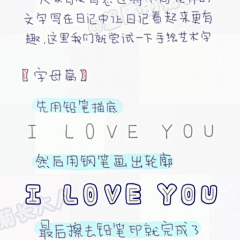 文字写在日记中让日记看起来更有
趣,这里我们就尝试一下手绘艺术字
【字母篇】
先用铅笔描底
I LOVE YOU
然后用钢笔画出轮廓
I LOVE YOU
最后擦去铅笔印就完成了